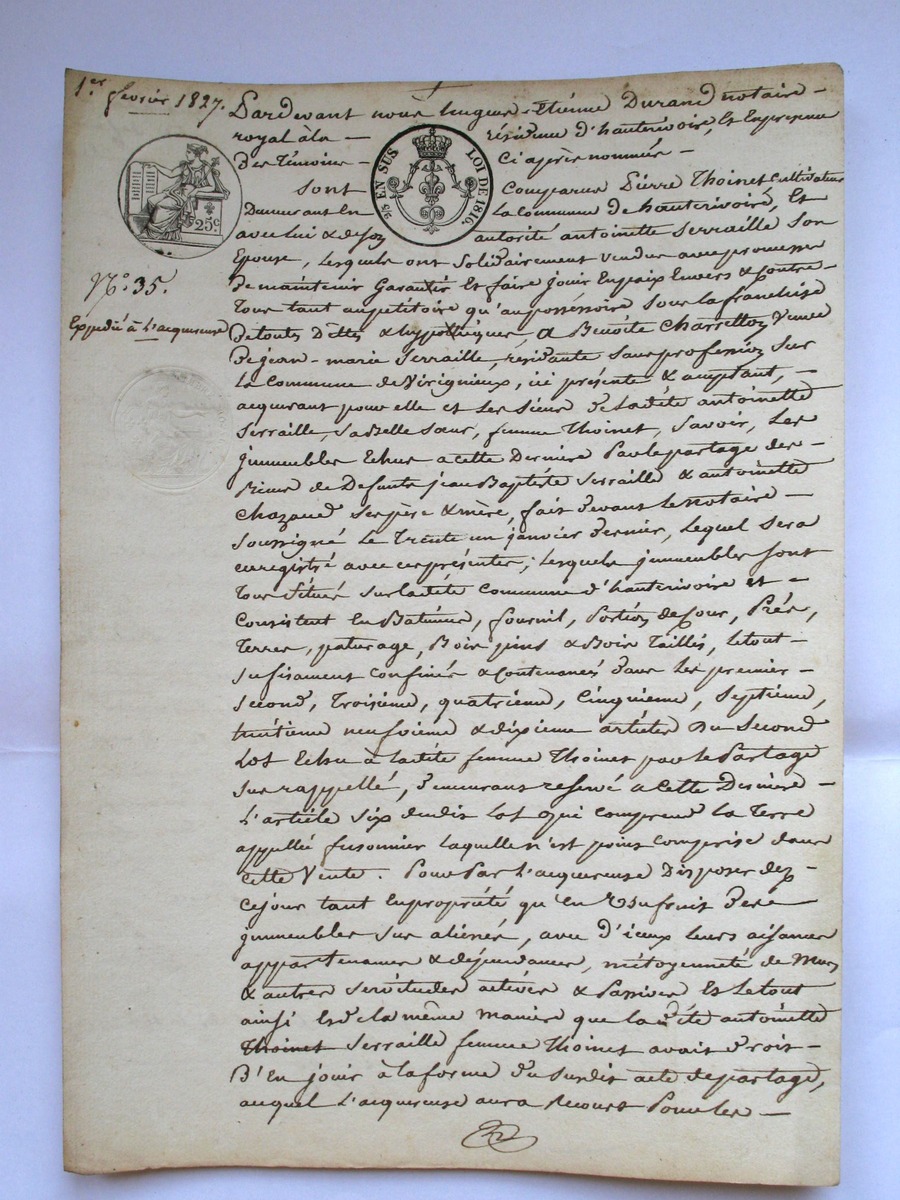 1.er
février 1827.
Pardevant nous hugues-Etiénne Durand notaire -
royal à la - résidence d'hauterivoire, Et En présence
Des Témoins - Ci après nommés -
25 EN SUS LOI DE 1816.
25c
Sont Comparus Pierre Thoinet Cultivateur
Demeurant En la Commune de hauterivoire, Et
avec lui & de son autorité antoinette Serraille Son
Epouse, Lesquels ont Solidairement vendus avec promesse
De maintenir Garantir Et faire Jouir En paix Envers & Contre -
N.o 35.
Tous tant au petitoire qu'au possessoire Sous la franchise
Expédié à L'acquereuse
De touts Dettes & hypothèques, a Benoite Charretton Veuve
De jean-marie Serraille, résidante Sans profession Sur
La Commune de Virigneux, ici présente & acceptant, -
acquerant pour elle et Les Siens De Ladéte antoinette
Serraille, Sa Belle Sœur, femme Thoinet, Savoir, Les
jmmeubles Echus a cette Derniere Par le partage des -
Biens de Defunts jean Baptiste Serraille & antoinette
Chazaud Ses père & mère, fait Devant Le notaire -
Soussigné Le Trente un janvier Dernier, Lequel Sera
enregistré avec ces présentes ; Lesquels jmmeubles Sont
Tous Situés Sur Ladéte Commune d'hauterivoire et -
Consistent En Batiment, fournil, Portion de Cour, Prés,
Terres, paturage, Bois pins & Bois Taillis, Le tout -
Sufisament Confinés & Contenancés Dans Les premier -
Second, Troisième, quatrième, Cinquieme, Septieme,
huitième neufvieme & dixieme articles Du Second
Lot Echu à Ladéte femme Thoinet par le Partage
Sus rappellé, Demeurant reservé a cette Derniere -
L'article Six dudit Lot qui comprend la Terre
appellé fusonnier laquelle n'est point comprise dans
cette Vente. Pour Par L'acquereuse Disposer dez -
Ce jour tant En propriété qu'En Usufruit Des
jmmeubles Sus aliénés, avec D'iceux Leurs aisances
appartenances & dépendances, mitoyenneté de Murs
& autres Servitudes actives & Passives Et Le tout
ainsi Et De la même maniere que la Déte antoinette
Thoinet Serraille femme Thoinet avait Droit -
D'En jouir à la forme Du Susdit acte de partage,
auquel L'acquereuse aura Recours Pour Les -